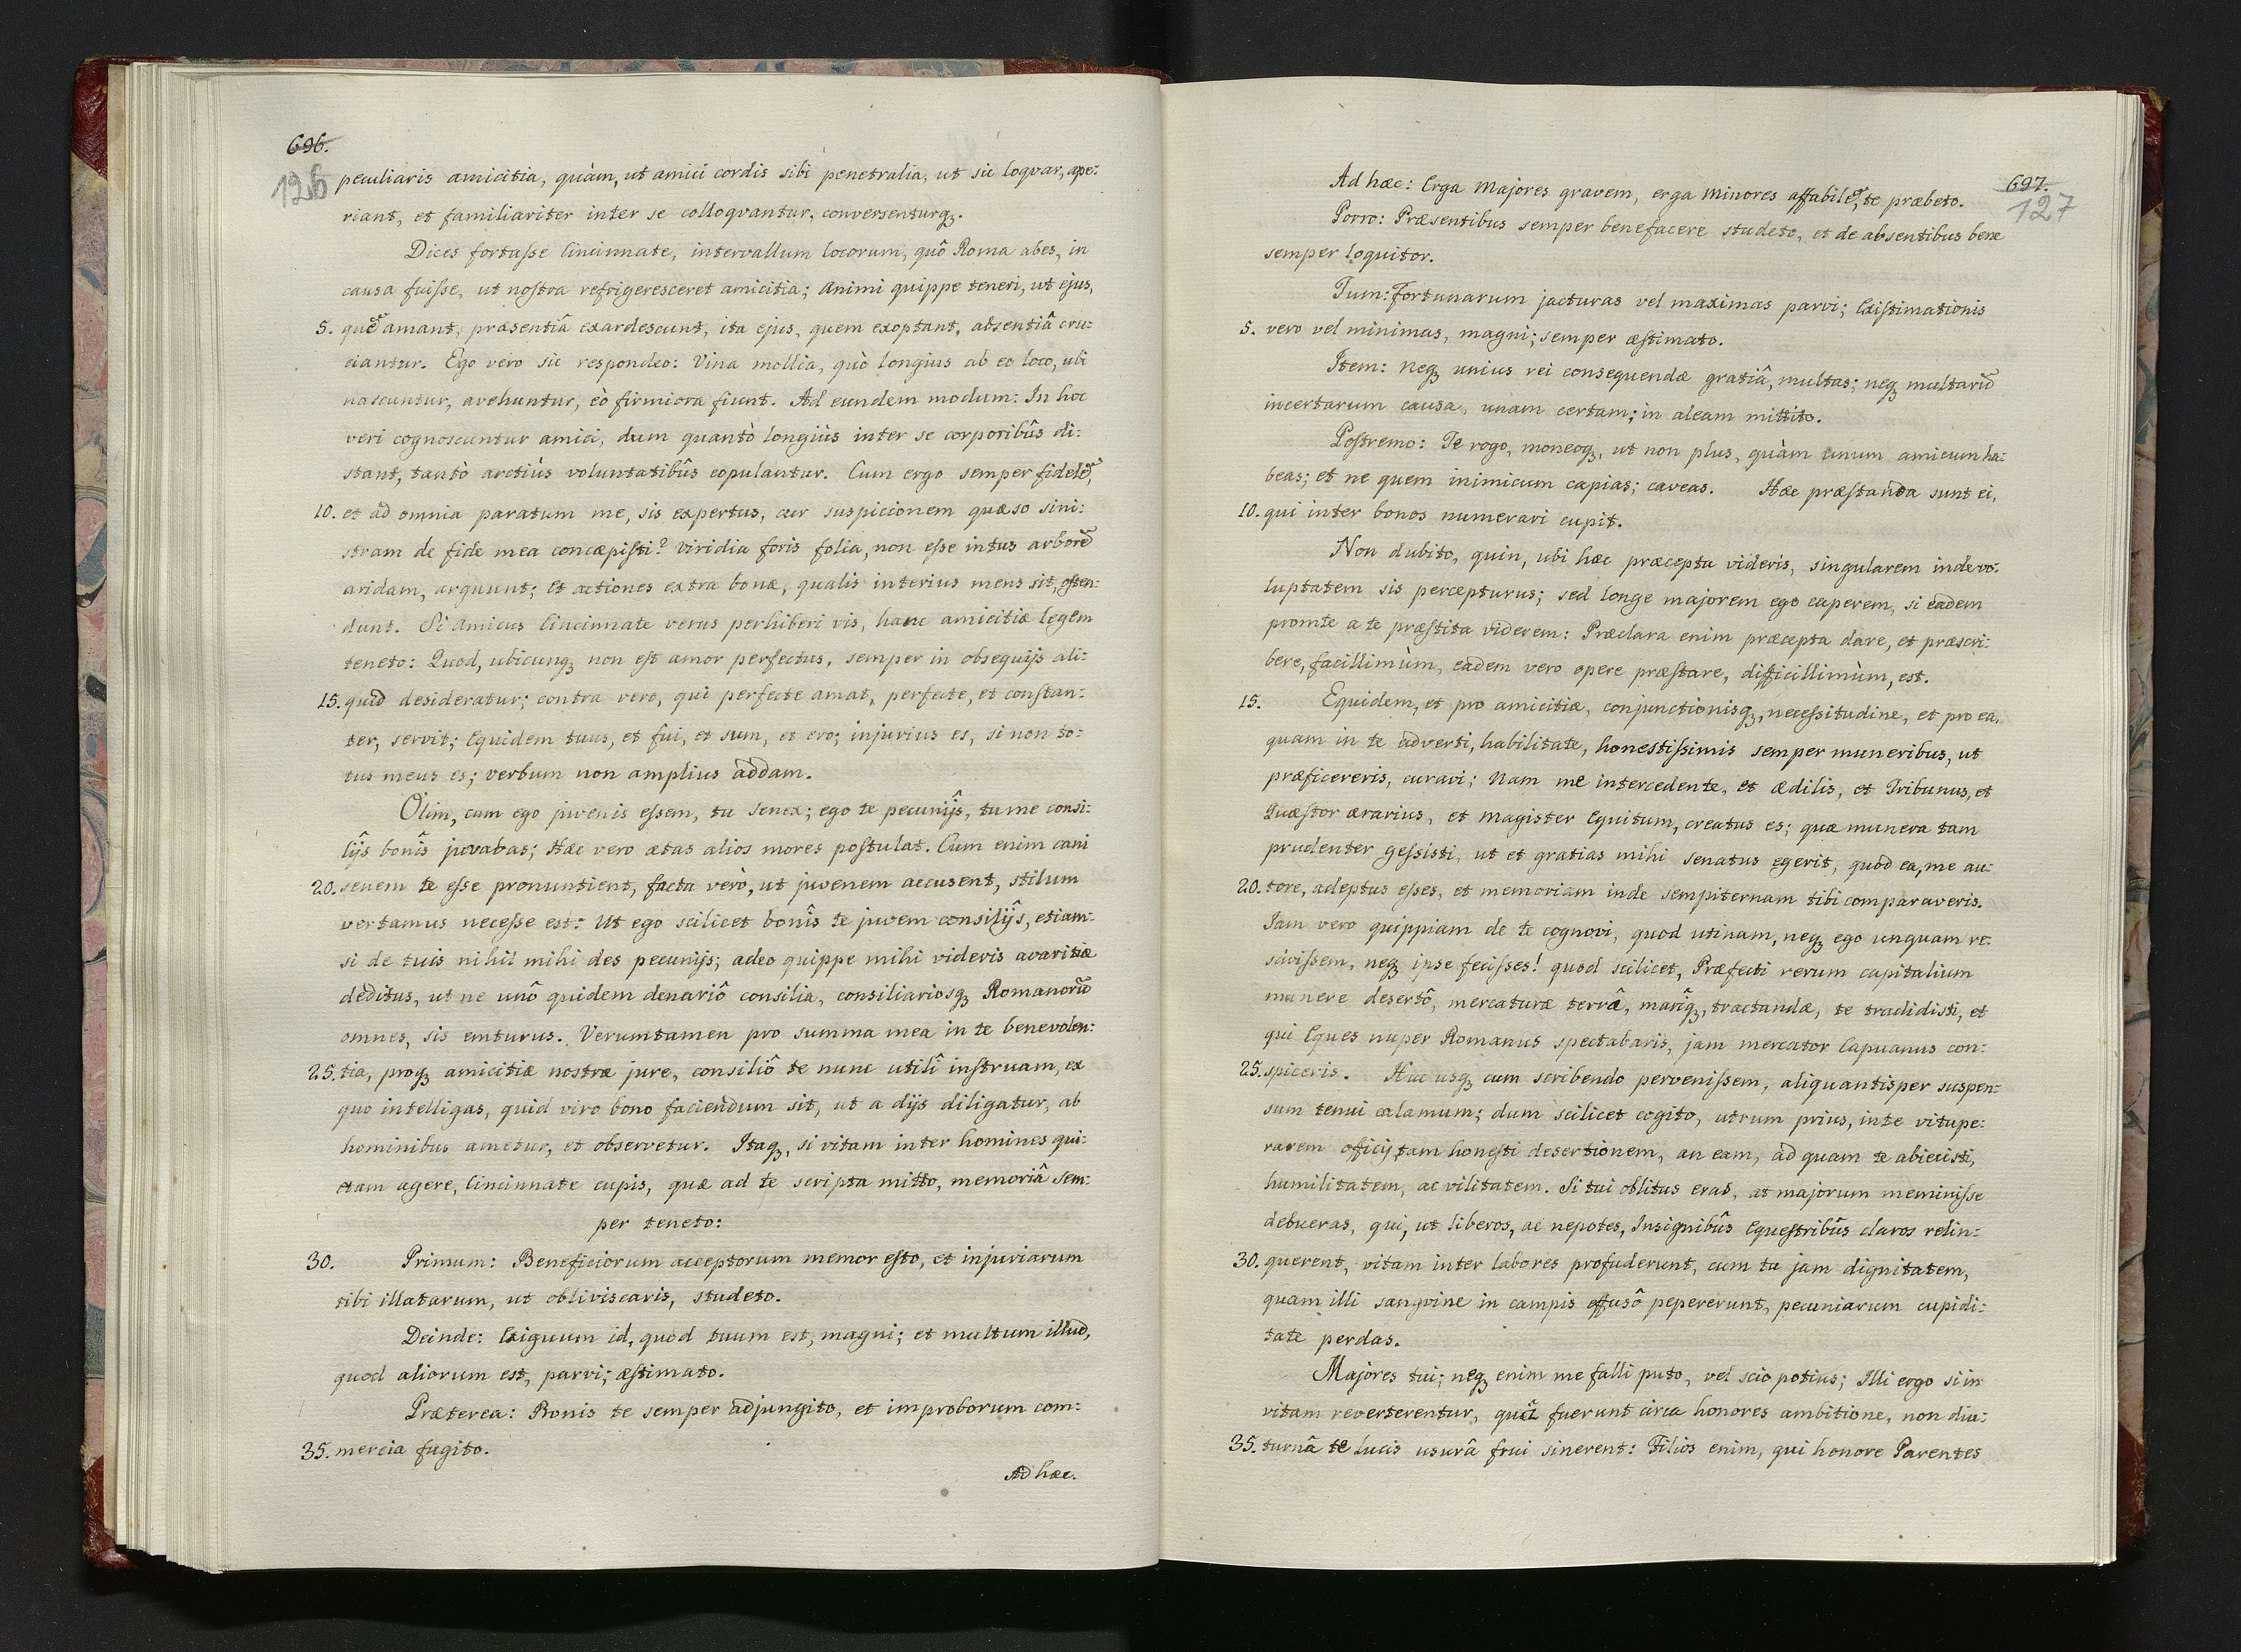 696.
126
peculiaris amicitia, quàm, ut amici cordis sibi penetralia, ut sic loqvar, ape:
riant, et familiariter inter se colloqvantur, conversenturq3.
Dices fortaſse Cincinnate, intervallum locorum, quô Roma abes, in
causa fuiſse, ut noſtra refrigeresceret amicitia; Animi quippe teneri, ut ejus,
5. que͂ amant, præsentiâ exardescunt, ita ejus, quem exoptant, absentiâ cru:
ciantur. Ego vero sic respondeo: Vina mollia, quò longius ab eo loco, ubi
nascuntur, avehuntur, eò firmiora fiunt. Ad eundem modum: In hoc
veri cognoscuntur amici, dum quantò longiùs inter se corporibûs di:
stant, tantò arctiùs voluntatibûs copulantur. Cum ergo semper fidele͂,
10. et ad omnia paratum me, sis expertus, cur suspicionem quæso sini:
stram de fide mea concæpiſti? Viridia foris folia, non eſse intus arbore͂
aridam, arguunt; Et actiones extra bonæ, qualis interius mens sit, oſten:
dunt. Si Amicus Cincinnate verus perhiberi vis, hanc amicitiæ legem
teneto: Quod, ubicunq3 non eſt amor perfectus, semper in obsequijs ali:
15. quid desideratur; contra vero, qui perfecte amat, perfecte, et conſtan:
ter, servit; Equidem tuus, et fui, et sum, et ero; injurius es, si non to:
tus meus es; verbum non amplius addam.
Olim, cum ego juvenis eſsem, tu senex; ego te pecunijs, tu me consi:
lijs bonîs juvabas; Hæc vero ætas alios mores poſtulat. Cum enim cani
20. senem te eſse pronuntient, facta verò, ut juvenem accusent, stilum
vertamus neceſse est: Ut ego scilicet bonîs te juvem consilijs, etiam:
si de tuis nihil mihi des pecunijs; adeo quippe mihi videris avaritiæ
deditus, ut ne unô quidem denariô consilia, consiliariosq3 Romanoru͂
omnes, sis emturus. Verumtamen pro summa mea in te benevolen:
25. tia, proq3 amicitiæ nostræ jure, consiliô te nunc utilî inſtruam, ex
quo intelligas, quid viro bono faciendum sit, ut a dijs diligatur, ab
hominibus ametur, et observetur. Itaq3, si vitam inter homines qui:
etam agere, Cincinnate cupis, quæ ad te scripta mitto, memoriâ sem:
per teneto:
30. Primum: Beneficiorum acceptorum memor eſto, et injuriarum
tibi illatarum, ut obliviscaris, studeto.
Deinde: Exiguum id, quod tuum est, magni; et multum illud,
quod aliorum est, parvi; æſtimato.
Præterea: Bonis te semper adjungito, et improborum com:
35. mercia fugito.
Ad hæc.
697.
127
Ad hæc: Erga Majores gravem, erga Minores affabile͂, te præbeto.
Porro: Præsentibus semper benefacere studeto, et de absentibus bene
semper loquitor.
Tum: Fortunarum jacturas vel maximas parvi; Exiſtimationis
5. vero vel minimas, magni; semper æſtimato.
Item: Neq3 unius rei consequendæ gratiâ, multas; neq3 multaru͂
incertarum causa, unam certam; in aleam mittito.
Poſtremo: Te rogo, moneoq3, ut non plus, quàm unum amicum ha:
beas; et ne quem inimicum capias; caveas. Hæc præſtanda sunt ei,
10. qui inter bonos numerari cupit.
Non dubito, quin, ubi hæc præcepta videris, singularem inde vo:
luptatem sis percepturus; sed longe majorem ego caperem, si eadem
promte a te præſtita viderem: Præclara enim præcepta dare, et præscri:
bere, facillimùm, eadem vero opere præſtare, difficillimùm, est.
15. Equidem, et pro amicitiæ, conjunctionisq3, neceſsitudine, et pro ea,
quam in te adverti, habilitate, honestiſsimis semper muneribus, ut
præficereris, curavi; Nam me intercedente, et Ædilis, et Tribunus, et
Quæſtor ærarius, et Magister Equitum, creatus es; quæ munera tam
prudenter geſsisti, ut et gratias mihi senatus egerit, quod ea, me au:
20. tore, adeptus eſses, et memoriam inde sempiternam tibi comparaveris.
Jam vero quippiam de te cognovi, quod utinam, neq3 ego unquam re:
sciviſsem, neq3 ipse feciſses! quod scilicet, Præfecti rerum capitalium
munere desertô, mercaturæ terrâ, mariq3, tractandæ, te tradidisti, et
qui Eques nuper Romanus spectabaris, jam mercator Capuanus con:
25. spiceris. Huc usq3 cum scribendo perveniſsem, aliquantisper suspen:
sum tenui calamum; dum scilicet cogito, utrum prius, in te vitupe:
rarem officij tam honeſti desertionem, an eam, ad quam te abiecisti,
humilitatem, ac vilitatem. Si tui oblitus eras, at majorum meminiſse
debueras, qui, ut liberos, ac nepotes, Insignibûs Equeſtribûs claros relin:
30. querent, vitam inter labores profuderunt, cum tu jam dignitatem,
quam illi sangvine in campis effusô pepererunt, pecuniarum cupidi:
tate perdas.
Majores tui; neq3 enim me falli puto, vel scio potius; Illi ergo si in
vitam reverterentur, quâ fuerunt circa honores ambitione, non diu:
35. turnâ te lucis usurâ frui sinerent: Filios enim, qui honore Parentes